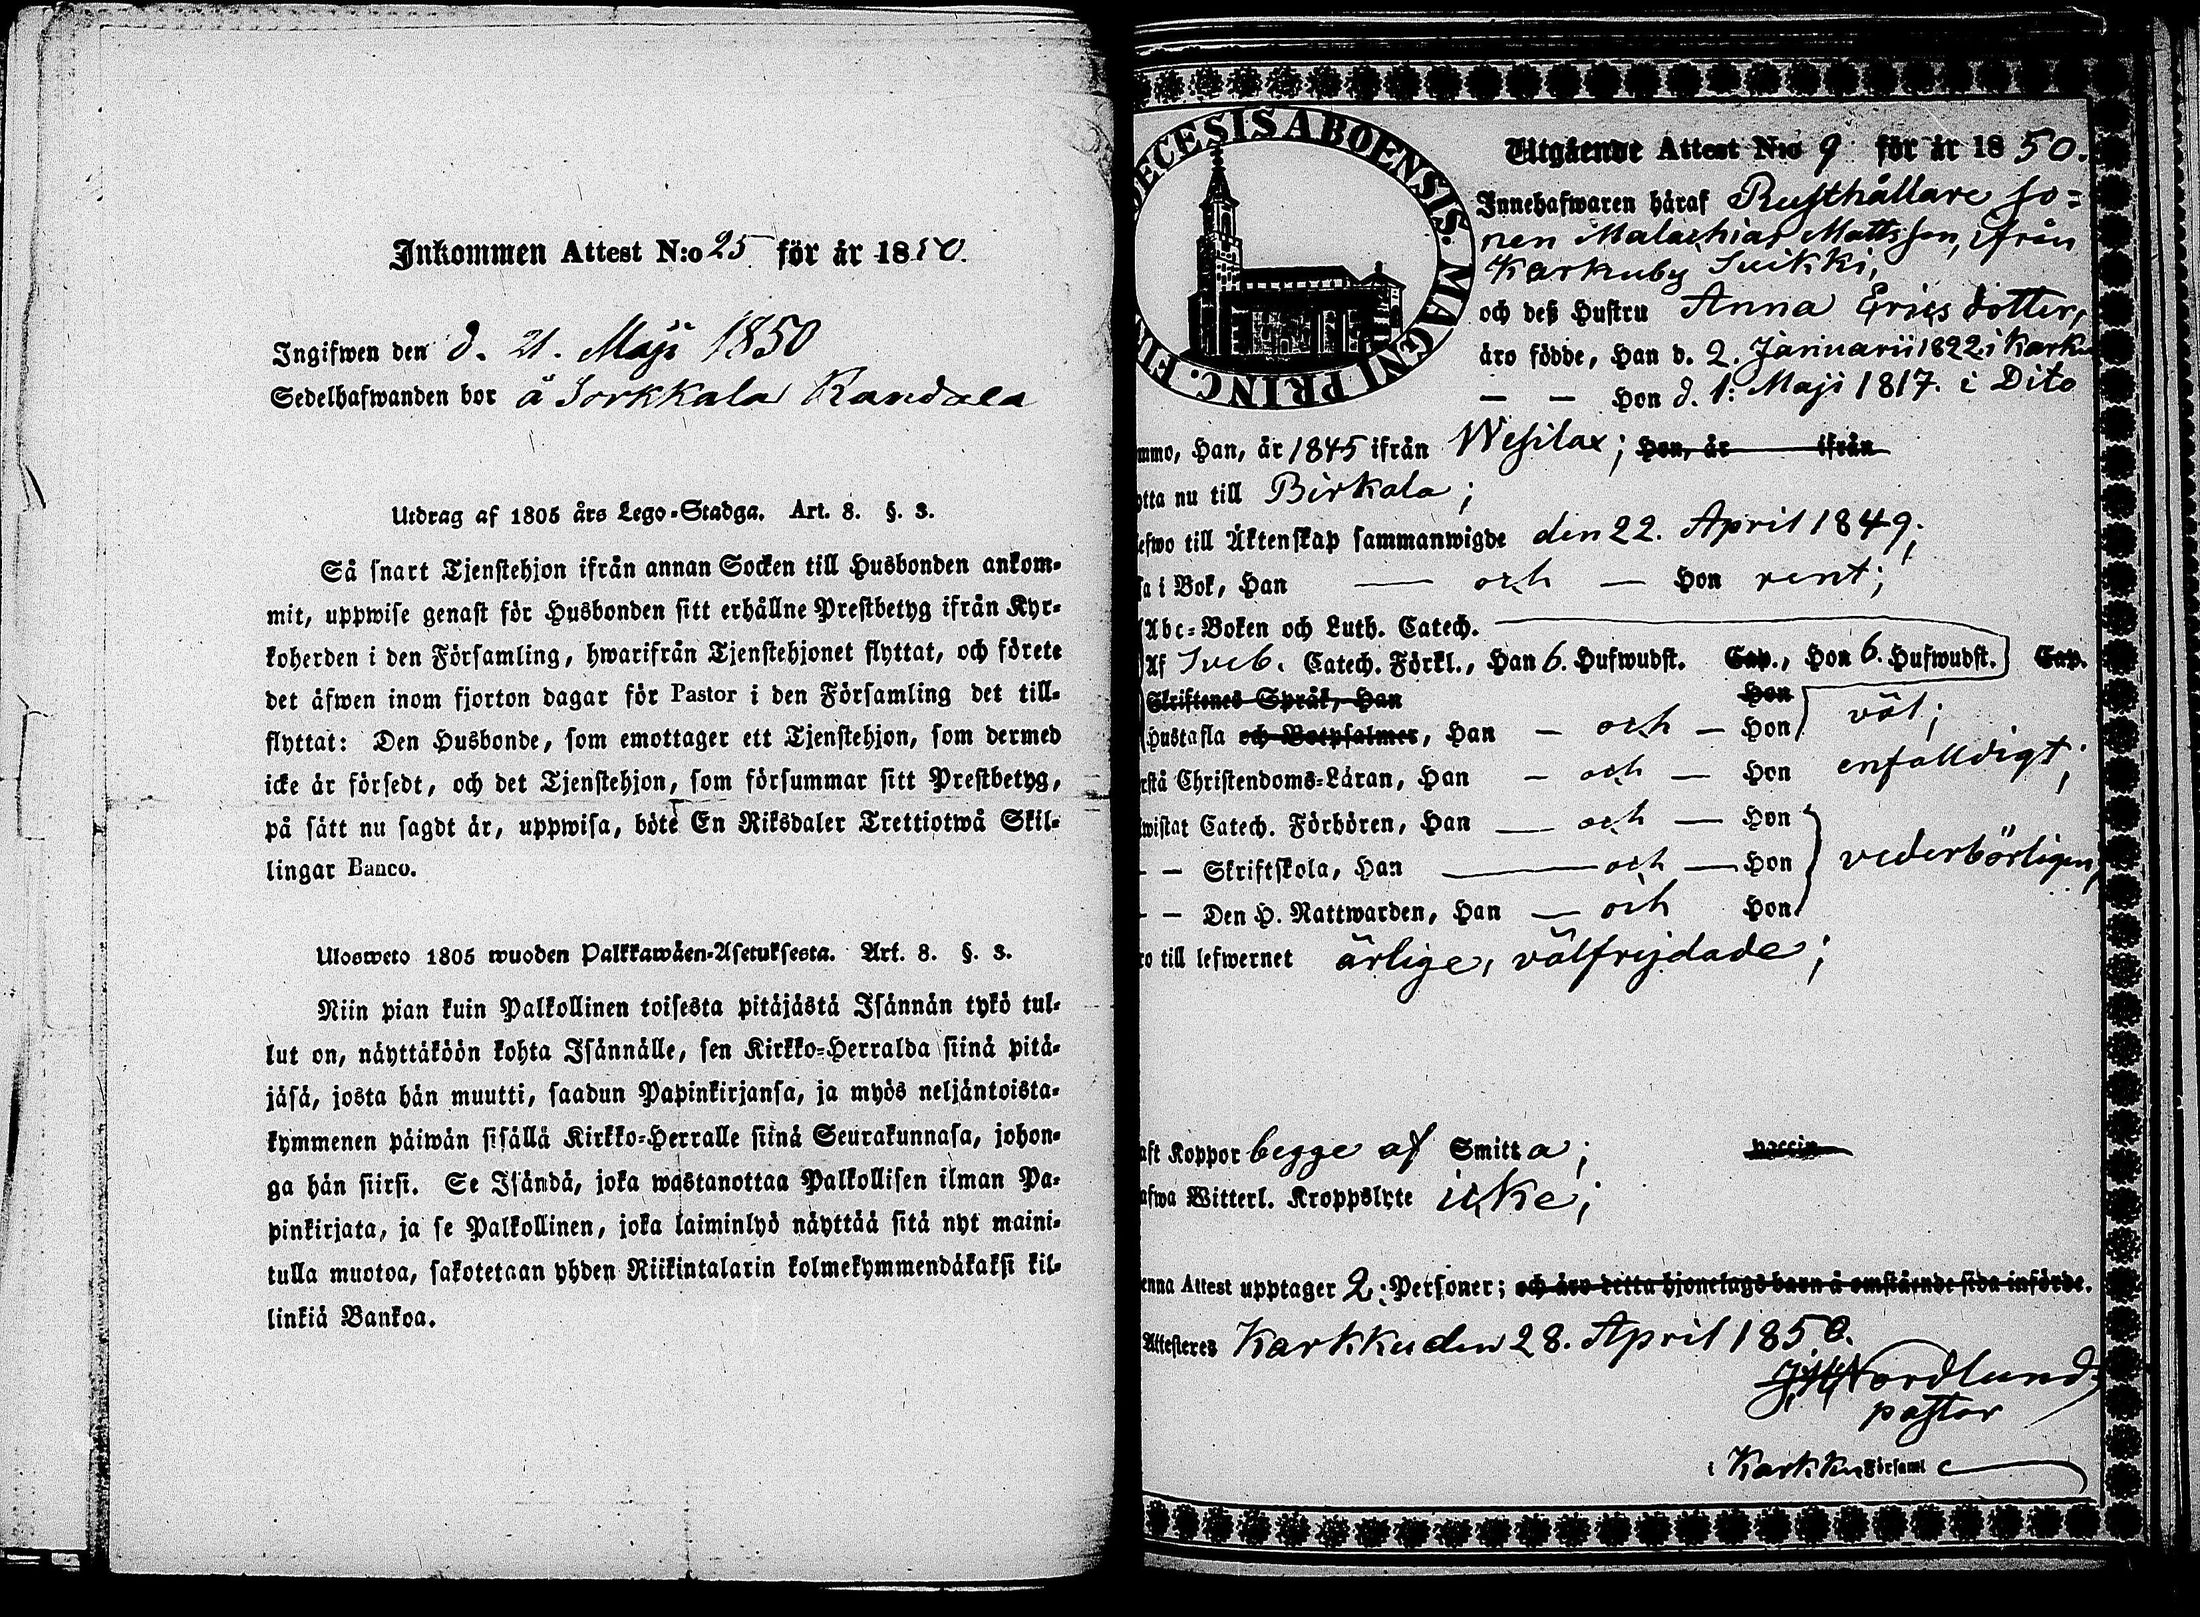 Inkommen Attest N:o 25 för år 1850.
Ingifwen den d. 21. Maji 1850
Sedelhafwanden bor å Sorkkala Randala
Utdrag af 1805 års Lego-Stadga. Art. 8. §. 3.
Så snart Tjenstehjon ifrån annan Socken till Husbonden ankom-
mit, uppwise genast för Husbonden sitt erhållne Prestbetyg ifrån Kyr-
koherden i den Församling, hwarifrån Tjenstehjonet flyttat, och förete
det äfwen inom fjorton dagar för Pastor i den Församling det till-
flyttat: Den Husbonde, som emottager ett Tjenstehjon, som dermed
icke är försedt, och det Tjenstehjon, som försummar sitt Prestbetyg,
på sätt nu sagdt är, uppwisa, böte En Riksdaler Trettiotwå Skil-
lingar Banco.
Ulosweto 1805 wuoden Palkkawäen-Asetuksesta. Art. 8. §. 3.
Niin pian kuin Palkollinen toisesta pitäjästä Isännän tykö tul-
lut on, näyttäköön kohta Isännälle, sen Kirkko-Herralda siinä pitä-
jäsä, josta hän muutti, saadun Papinkirjansa, ja myös neljäntoista-
kymmenen päiwän sisällä Kirkko-Herralle siinä Seurakunnasa, johon-
ga hän siirsi. Se Isändä, joka wastanottaa Palkollisen ilman Pa-
pinkirjata, ja se Palkollinen, joka laiminlyö näyttää sitä nyt maini-
tulla muotoa, sakotetaan yhden Riikintalarin kolmekymmendäkaksi kil-
linkiä Bankoa.
ECESIS ABOENSIS. MAGNI PRINC. FI
Utgående Attest N:o 9 för år 1850.
Innehafwaren häraf Rusthållare so=
nen Malachias Mattsson, ifrån
Karkuby Suikki,
och deß Hustru Anna Ericsdotter,
äro födde, Han d. 2. Januarii 1822 i Karku
— — Hon d. 1. Maji 1817. i Dito
mmo, Han, år 1845 ifrån Wesilax; Hon, år ifrån
tta nu till Birkala;
efwo till Äktenskap sammanwigde den 22. April 1849;
sa i Bok, Han — och — Hon rent;
Abc-Boken och Luth. Catech.
Af Sveb. Catech. Förkl., Han 6. Hufwudst. Cap., Hon 6. Hufwudst. Cap.
Skriftenes Språk, Han Hon
Hustafla och Botpsalmer, Han — och — Hon väl;
rstå Christendoms-Läran, Han — och — Hon enfalldigt;
wistat Catech. Förhören, Han — och — Hon
— — Skriftskola, Han — och — Hon vederbörligen;
— — Den H. Nattwarden, Han — och — Hon
ro till lefwernet ärlige, välfrejdade;
aft Koppor begge af Smitta; vaccin
afwa Witterl. Kroppslyte icke;
enna Attest upptager 2. Personer; och äro detta hjonelags barn å omstående sida införde.
Attesteres Karkku den 28. April 1850.
Nordlund,
pastor
i Karkku Församl